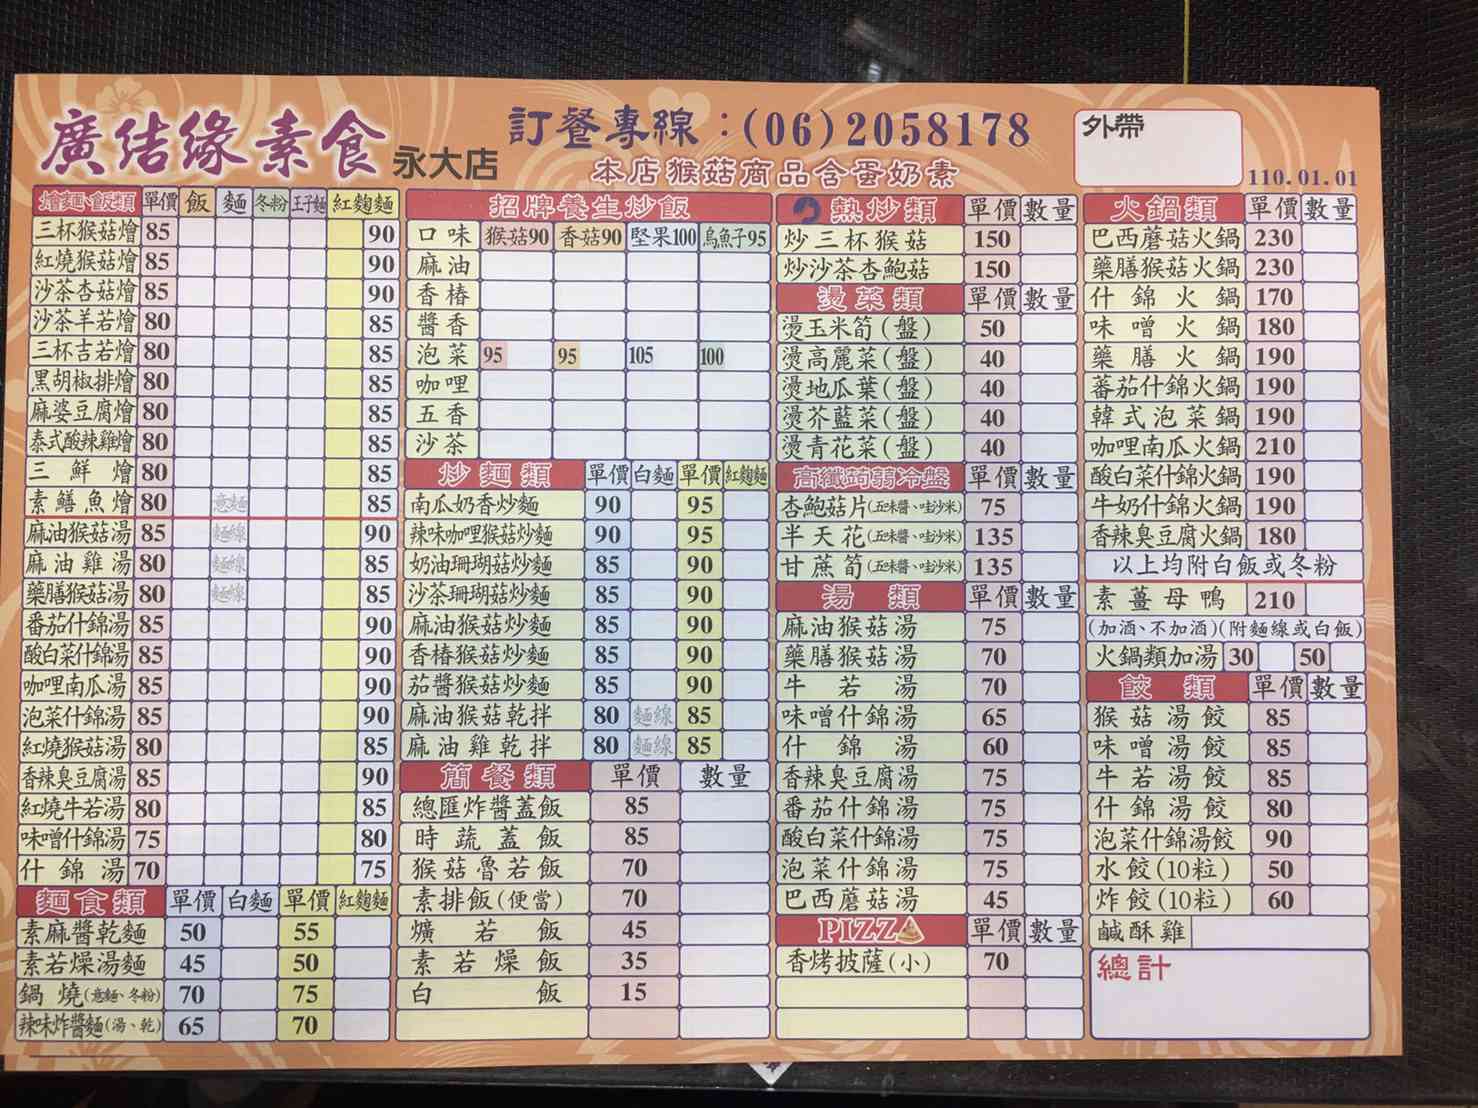 廣結緣素食 永大店
訂餐專線：(06)2058178
本店猴菇商品含蛋奶素
外帶
110.01.01
燴麵飯類 單價 飯 麵 冬粉 王子麵 紅麴麵
三杯猴菇燴 85 90
紅燒猴菇燴 85 90
沙茶杏菇燴 85 90
沙茶羊若燴 80 85
三杯吉若燴 80 85
黑胡椒排燴 80 85
麻婆豆腐燴 80 85
泰式酸辣雞燴 80 85
三鮮燴 80 85
素鱔魚燴 80 意麵 85
麻油猴菇湯 85 麵線 90
麻油雞湯 80 麵線 85
藥膳猴菇湯 80 麵線 85
番茄什錦湯 85 90
酸白菜什錦湯 85 90
咖哩南瓜湯 85 90
泡菜什錦湯 85 90
紅燒猴菇湯 80 85
香辣臭豆腐湯 85 90
紅燒牛若湯 80 85
味噌什錦湯 75 80
什錦湯 70 75
麵食類 單價 白麵 單價 紅麴麵
素麻醬乾麵 50 55
素若燥湯麵 45 50
鍋燒(意麵、冬粉) 70 75
辣味炸醬麵(湯、乾) 65 70
招牌養生炒飯
口味 猴菇90 香菇90 堅果100 烏魚子95
麻油
香椿
醬香
泡菜 95 95 105 100
咖哩
五香
沙茶
炒麵類 單價 白麵 單價 紅麴麵
南瓜奶香炒麵 90 95
辣味咖哩猴菇炒麵 90 95
奶油珊瑚菇炒麵 85 90
沙茶珊瑚菇炒麵 85 90
麻油猴菇炒麵 85 90
香椿猴菇炒麵 85 90
茄醬猴菇炒麵 85 90
麻油猴菇乾拌 80 麵線 85
麻油雞乾拌 80 麵線 85
簡餐類 單價 數量
總匯炸醬蓋飯 85
時蔬蓋飯 85
猴菇魯若飯 70
素排飯(便當) 70
爌若飯 45
素若燥飯 35
白飯 15
熱炒類 單價 數量
炒三杯猴菇 150
炒沙茶杏鮑菇 150
燙菜類 單價 數量
燙玉米筍(盤) 50
燙高麗菜(盤) 40
燙地瓜葉(盤) 40
燙芥藍菜(盤) 40
燙青花菜(盤) 40
高纖蒟蒻冷盤 單價 數量
杏鮑菇片(五味醬、哇沙米) 75
半天花(五味醬、哇沙米) 135
甘蔗筍(五味醬、哇沙米) 135
湯類 單價 數量
麻油猴菇湯 75
藥膳猴菇湯 70
牛若湯 70
味噌什錦湯 65
什錦湯 60
香辣臭豆腐湯 75
番茄什錦湯 75
酸白菜什錦湯 75
泡菜什錦湯 75
巴西蘑菇湯 45
PIZZA 單價 數量
香烤披薩(小) 70
火鍋類 單價 數量
巴西蘑菇火鍋 230
藥膳猴菇火鍋 230
什錦火鍋 170
味噌火鍋 180
藥膳火鍋 190
蕃茄什錦火鍋 190
韓式泡菜鍋 190
咖哩南瓜火鍋 210
酸白菜什錦火鍋 190
牛奶什錦火鍋 190
香辣臭豆腐火鍋 180
以上均附白飯或冬粉
素薑母鴨 210
(加酒、不加酒)(附麵線或白飯)
火鍋類加湯 30 50
餃類 單價 數量
猴菇湯餃 85
味噌湯餃 85
牛若湯餃 85
什錦湯餃 80
泡菜什錦湯餃 90
水餃(10粒) 50
炸餃(10粒) 60
鹹酥雞
總計